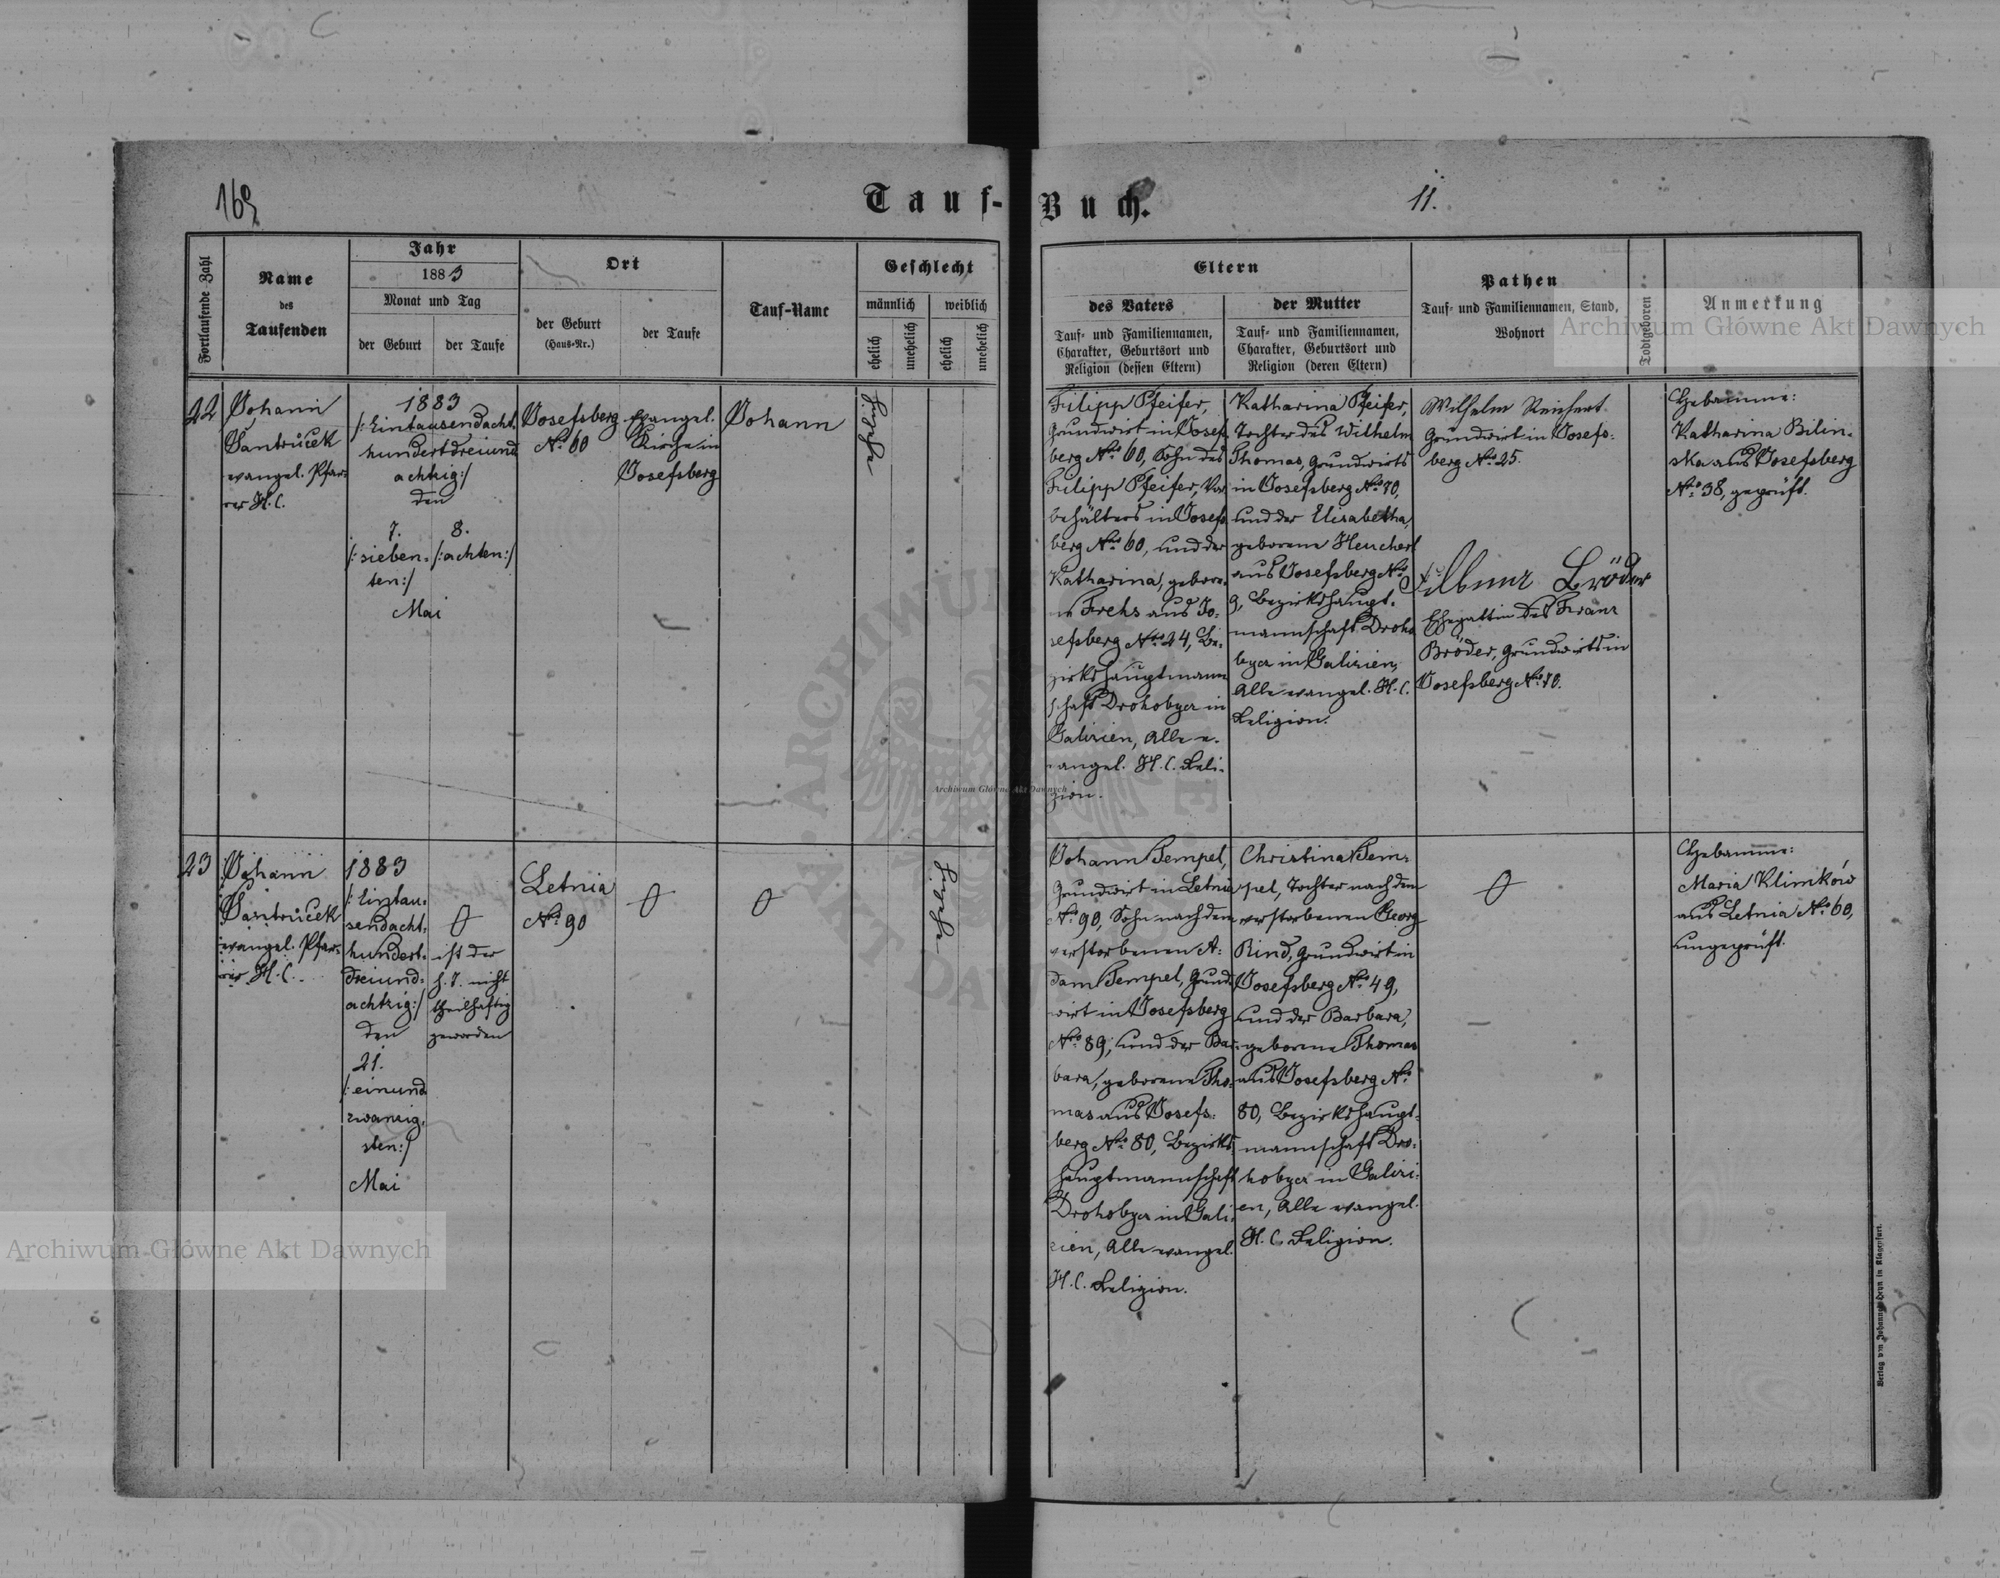 169
Tauf-
Buch.
11.
Fortlaufende Zahl
Name
des
Taufenden
Jahr
1883
Monat und Tag
der Geburt
der Taufe
Ort
der Geburt
(Haus-Nr.)
der Taufe
Tauf-Name
Geschlecht
männlich
weiblich
ehelich
unehelich
ehelich
unehelich
Eltern
des Vaters
Tauf- und Familiennamen,
Charakter, Geburtsort und
Religion (dessen Eltern)
der Mutter
Tauf- und Familiennamen,
Charakter, Geburtsort und
Religion (deren Eltern)
Pathen
Tauf- und Familiennamen, Stand,
Wohnort
Todtgeboren
Anmerkung
22
Johann
Santrůček
evangel. Pfar-
rer H. C.
1883
/:Eintausendacht-
hundertdreiund
achtzig:/
den
7.
/:sieben-
ten:/
8.
/:achten:/
Mai
Josefsberg
Nro 60
Evangel.
Kirche in
Josefsberg
Johann
Filipp Pfeifer,
Grundwirt in Josefs
berg Nro 60, Sohn des
Filipp Pfeifer, Vor
behälters in Josefs
berg Nro 60, und der
Katharina, gebore-
Frehs aus Jo-
sefsberg Nro 24, Be-
zirkshauptmann
schaft Drohobycz in
Galizien, Alle e-
vangel. H. C. Reli-
gion.
Katharina Pfeifer,
Tochter des Wilhelm
Thomas, Grundwirts
in Josefsberg Nro 70,
und der Elisabetha,
geborene Heuchert
aus Josefsberg Nro
9, Bezirkshaupt-
mannschaft Droho
bycz in Galizien,
Alle evangel. H. C.
Religion.
Wilhelm Reichert
Grundwirt in Josefs-
berg Nro 25.
Bröder
Ehegattin des Franz
Bröder, Grundwirts in
Josefsberg Nro 70.
Hebamme:
Katharina Bilin-
ska aus Josefsberg
Nro 38, geprüft.
23
Johann
Santrůček
evangel. Pfar-
rer H. C.
1883
/:Eintau-
sendacht-
hundert-
dreiund-
achtzig:/
den
21.
/:einund
zwanzig-
sten:/
Mai
ist der
h. T. nicht
theilhaftig
geworden
Letnia
Nro 90
Johann Tempel,
Grundwirt in Letnia
Nro 90, Sohn nach dem
verstorbenen A-
dam Tempel, Grund
wirt in Josefsberg
Nro 89, und der Bar-
bara, geborene Tho-
mas aus Josefs-
berg Nro 80, Bezirks
hauptmannschaft
Drohobycz in Gali-
zien, Alle evangel.
H. C. Religion.
Christina Tem-
pel, Tochter nach dem
verstorbenen Georg
Rind, Grundwirt in
Josefsberg Nro 49,
und der Barbara,
geborene Thomas
aus Josefsberg Nro
80, Bezirkshaupt-
mannschaft Dro-
hobycz in Galizi-
en, Alle evangel.
H. C. Religion.
Hebamme:
Maria Klimków
aus Letnia Nro 60,
ungeprüft.
Verlag von Johannes Heyn in Klagenfurt.
Archiwum Główne Akt Dawnych
Archiwum Główne Akt Dawnych
Archiwum Główne Akt Dawnych